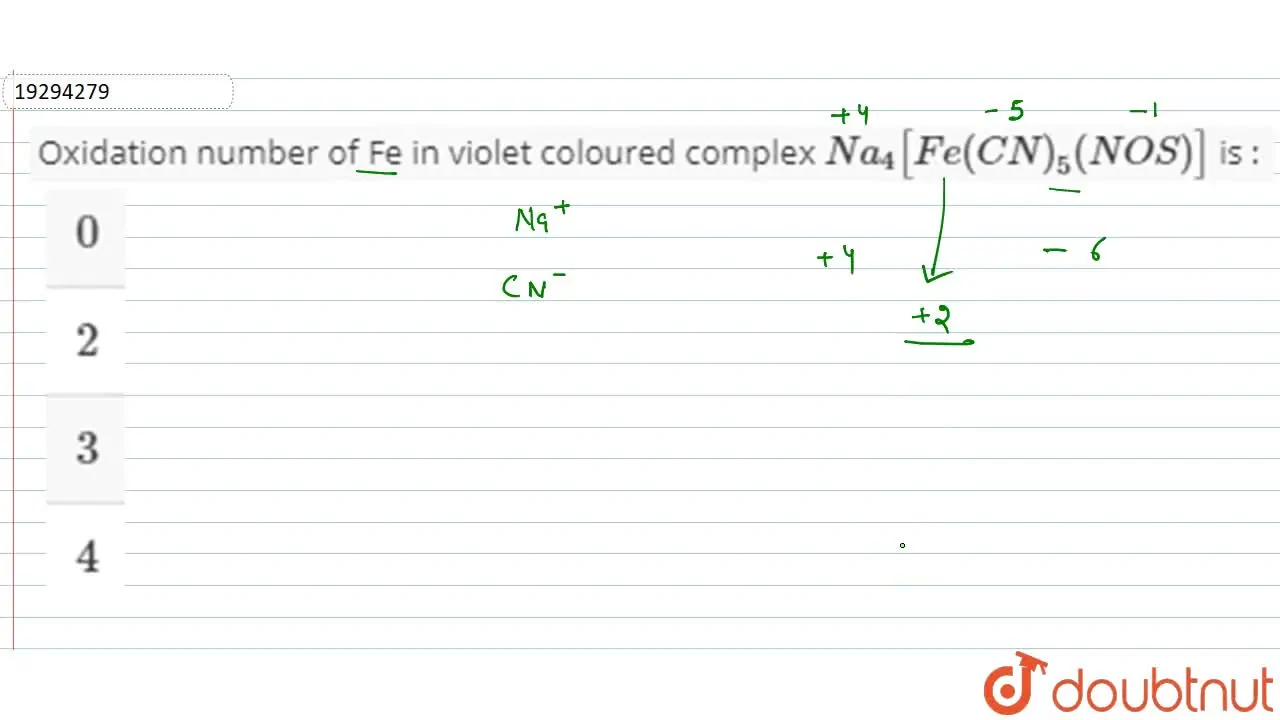 19294279
+4 -5 -1
Oxidation number of Fe in violet coloured complex Na₄[Fe(CN)₅(NOS)] is :
0
Na⁺
+4 - 6
CN⁻
+2
2
3
4
doubtnut